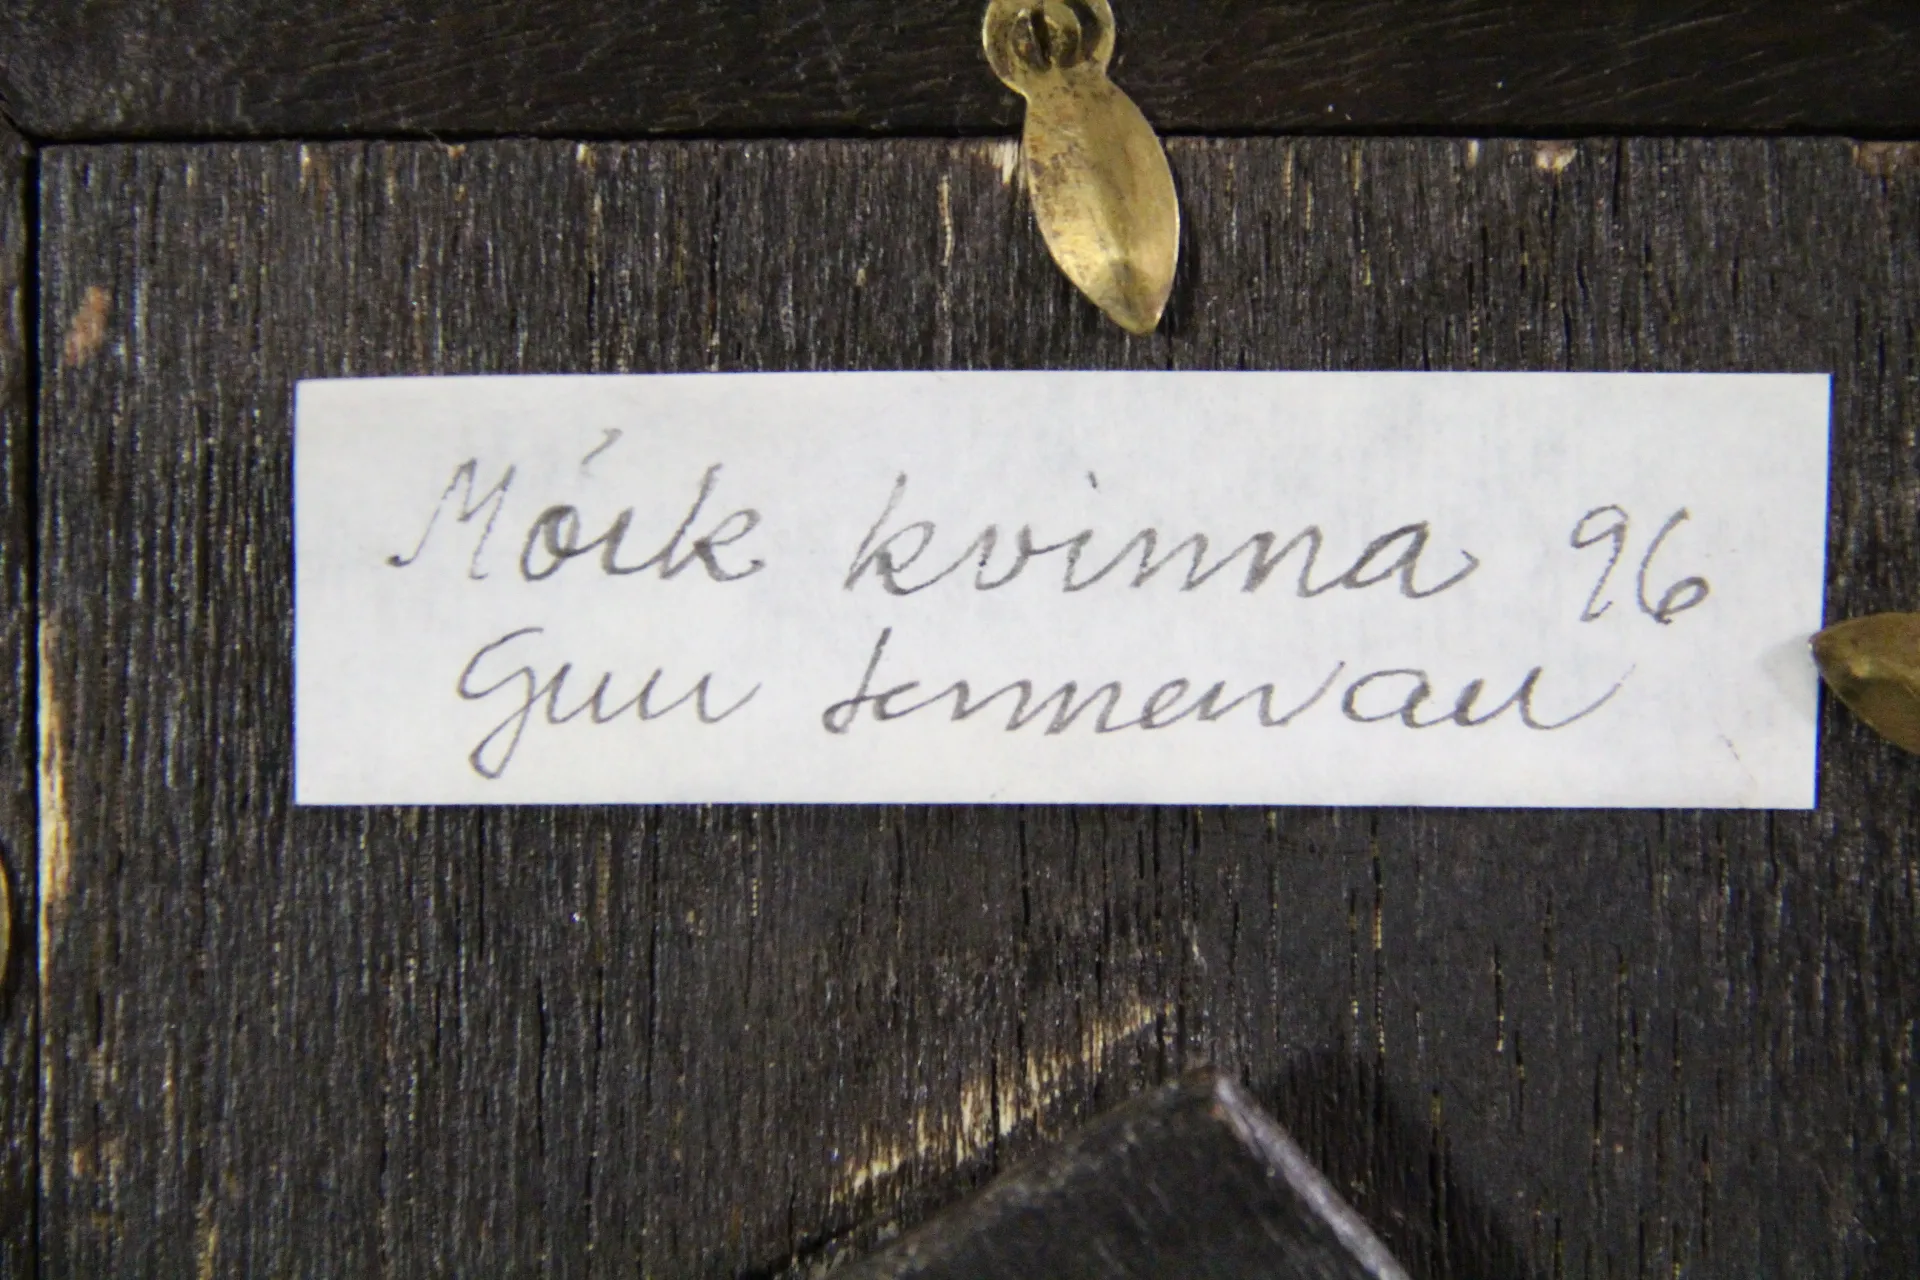 Mörk kvinna 96
Gun